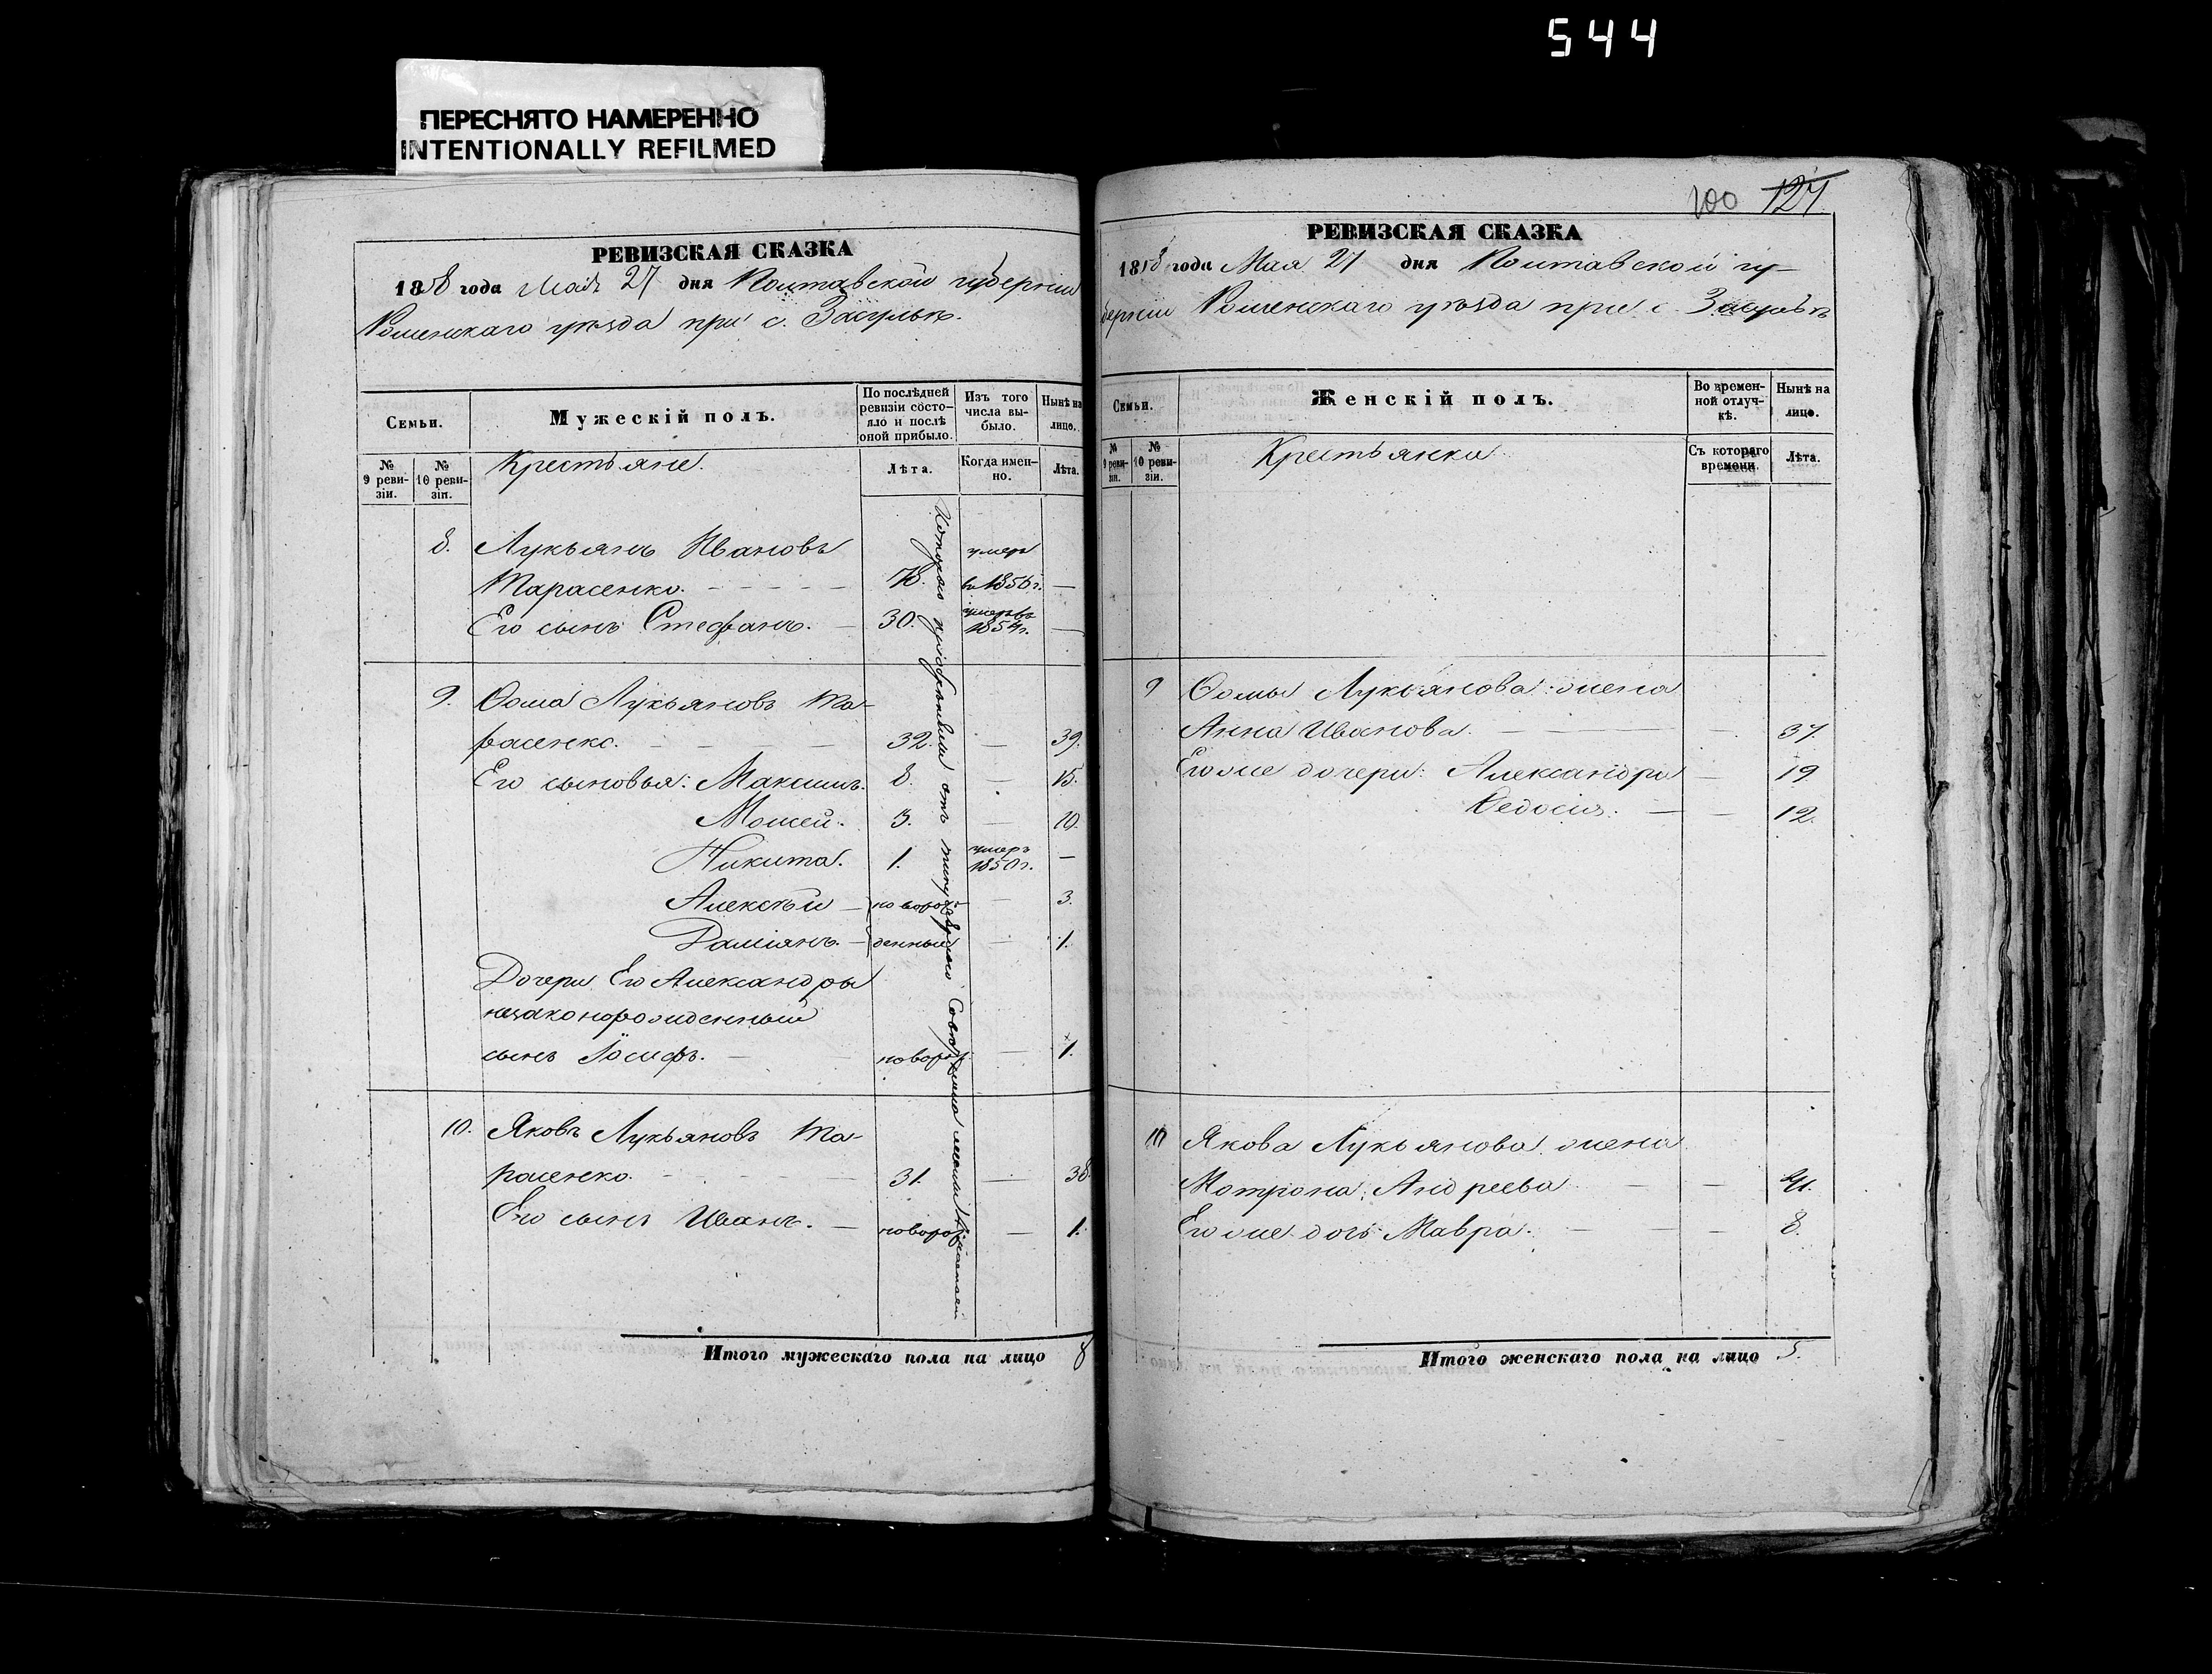 544
ПЕРЕСНЯТО НАМЕРЕННО
INTENTIONALLY REFILMED
РЕВИЗСКАЯ СКАЗКА
1858 года Мая 27 дня Полтавской губернии
Роменскаго уѣзда при с. Засульѣ.
Семьи.
Мужескій полъ.
По послѣдней ревизіи состояло и послѣ оной прибыло.
Изъ того числа выбыло.
Нынѣ на лицо.
№ 9 ревизіи.
№ 10 ревизіи.
Крестьяне.
Лѣта.
Когда именно.
Лѣта.
8. Лукьянъ Ивановъ умеръ
Тарасенко. 78. въ 1856 г. —
Его сынъ Стефанъ. — 30. умеръ въ 1854 г. —
9. Ѳома Лукьяновъ Та-
расенко. 32. — 39.
Его сыновья: Максимъ. 8. — 15.
Моисей. 3. — 10.
Никита. 1. умеръ 1850 г. —
Алексѣй — новорож — 3.
Даміянъ. — денные — 1.
Дочери Его Александры
незаконорожденный
сынъ Іосифъ. — новорож — 1.
10. Яковъ Лукьяновъ Та-
расенко. 31. — 38.
Его сынъ Иванъ. — новорож — 1.
отъ
Итого мужескаго пола на лицо 8
100 127
РЕВИЗСКАЯ СКАЗКА
1858 года Мая 27 дня Полтавской гу-
берніи Роменскаго уѣзда при с. Засульѣ
Семьи.
Женскій полъ.
Во временной отлучкѣ.
Нынѣ на лицо.
№ 9 ревизіи.
№ 10 ревизіи.
Крестьянки
Съ котораго времени.
Лѣта.
9 Ѳомы Лукьянова: жена
Анна Иванова. — — 37.
Его же дочери: Александра — 19
Ѳедосія. — — 12.
10 Якова Лукьянова жена
Мотрона Андреева — — 41.
Его же дочь Мавра. — — 8.
Итого женскаго пола на лицо 5.